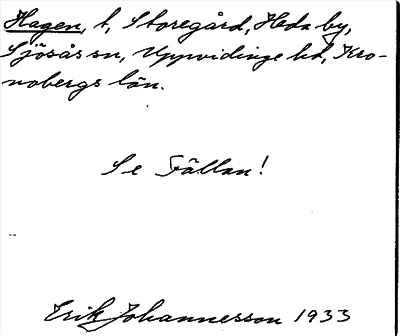 Hagen, t, Storegård, Heda by,
Sjösås sn, Uppvidinge hd, Kro-
nobergs län.
Se Fällan!
Erik Johannesson 1933